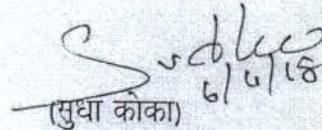 Sudha
6/4/18
(सुधा कोका)